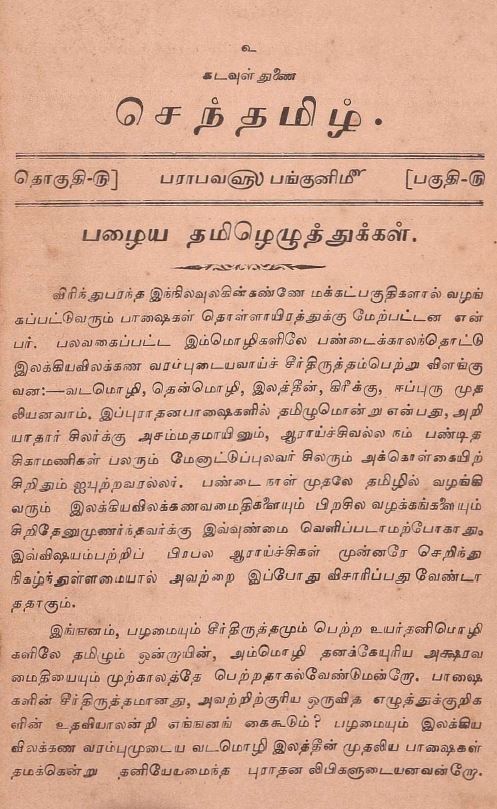 உ
கடவுள் துணை
செந்தமிழ்.
தொகுதி-௫] பராபவ௵ பங்குனி௴ [பகுதி-௫
பழைய தமிழெழுத்துக்கள்.
விரிந்துபரந்த இந்நிலவுலகின்கண்ணே மக்கட்பகுதிகளால் வழங்
கப்பட்டுவரும் பாஷைகள் தொள்ளாயிரத்துக்கு மேற்பட்டன என்
பர். பலவகைப்பட்ட இம்மொழிகளிலே பண்டைக்காலந்தொட்டு
இலக்கியவிலக்கண வரம்புடையவாய்ச் சீர்திருத்தம்பெற்று விளங்கு
வன:—வடமொழி, தென்மொழி, இலத்தீன், கிரீக்கு, ஈப்புரு முத
லியனவாம். இப்புராதனபாஷைகளில் தமிழுமொன்று என்பது, அறி
யாதார் சிலர்க்கு அசம்மதமாயினும், ஆராய்ச்சிவல்ல நம் பண்டித
சிகாமணிகள் பலரும் மேனாட்டுப்புலவர் சிலரும் அக்கொள்கையிற்
சிறிதும் ஐயுற்றவரல்லர். பண்டை நாள் முதலே தமிழில் வழங்கி
வரும் இலக்கியவிலக்கணவமைதிகளையும் பிறசில வழக்கங்களையும்
சிறிதேனுமுணர்ந்தவர்க்கு இவ்வுண்மை வெளிப்படாமற்போகாது.
இவ்விஷயம்பற்றிப் பிரபல ஆராய்ச்சிகள் முன்னரே செறிந்து
நிகழ்ந்துள்ளமையால் அவற்றை இப்போது விசாரிப்பது வேண்டா
ததாகும்.
இங்ஙனம், பழமையும் சீர்திருத்தமும் பெற்ற உயர்தனிமொழி
களிலே தமிழும் ஒன்றாயின், அம்மொழி தனக்கேயுரிய அக்ஷரவ
மைதியையும் முற்காலத்தே பெற்றதாகல்வேண்டுமன்றோ. பாஷை
களின் சீர்திருத்தமானது, அவற்றிற்குரிய ஒருவித எழுத்துக்குறிக
ளின் உதவியாலன்றி எங்ஙனங் கைகூடும்? பழமையும் இலக்கிய
விலக்கண வரம்புமுடைய வடமொழி இலத்தீன் முதலிய பாஷைகள்
தமக்கென்று தனியேயமைந்த புராதன லிபிகளுடையனவன்றோ.